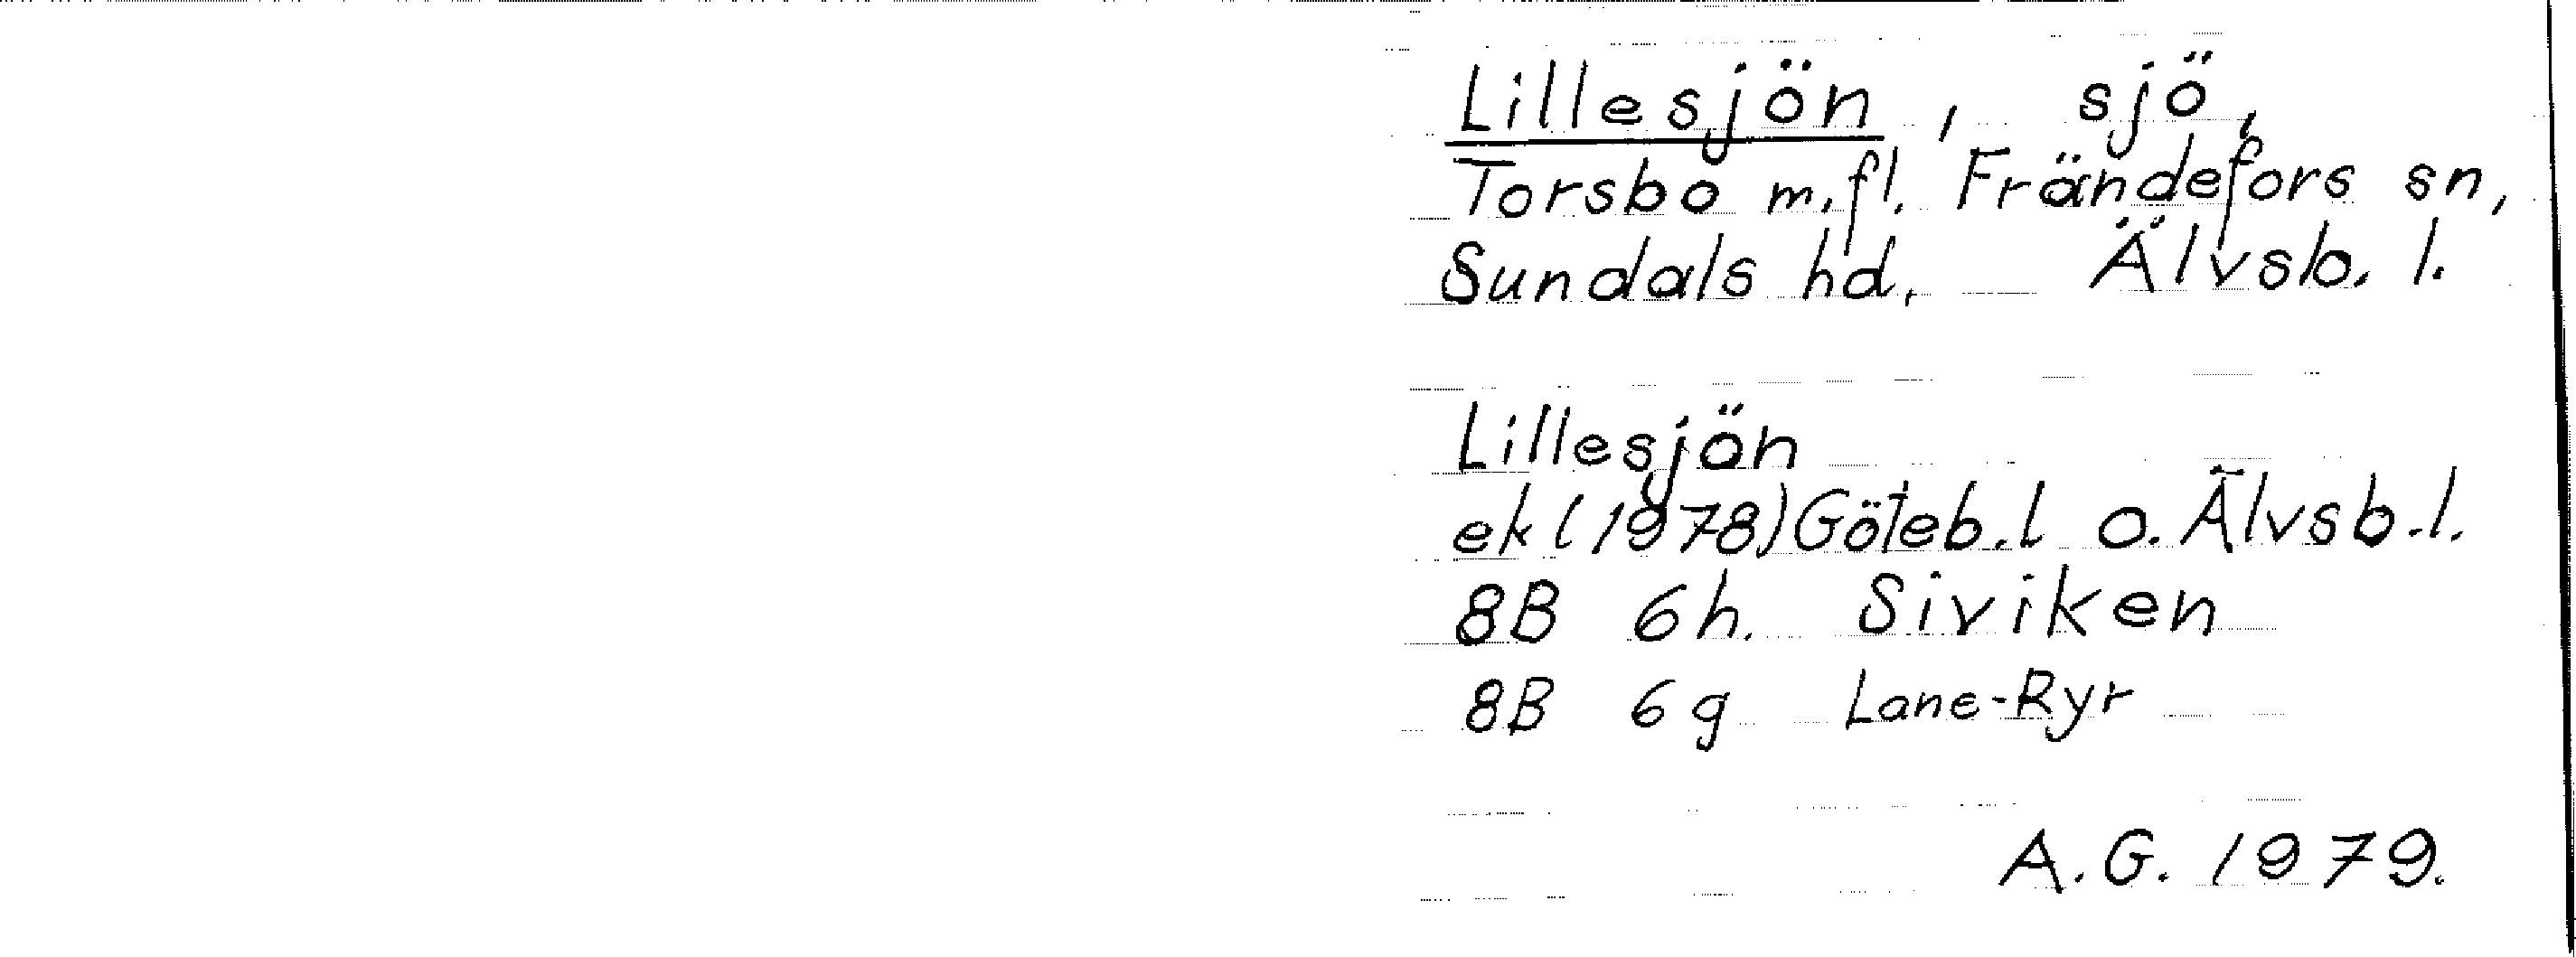 Lillesjön, sjö,
Torsbo m.fl. Frändefors sn,
Sundals hd, Älvsb. l.
Lillesjön
ek (1978) Göteb.l o. Älvsb.l.
8B 6h. Siviken
8B 6g Lane-Ryr
A.G. 1979.